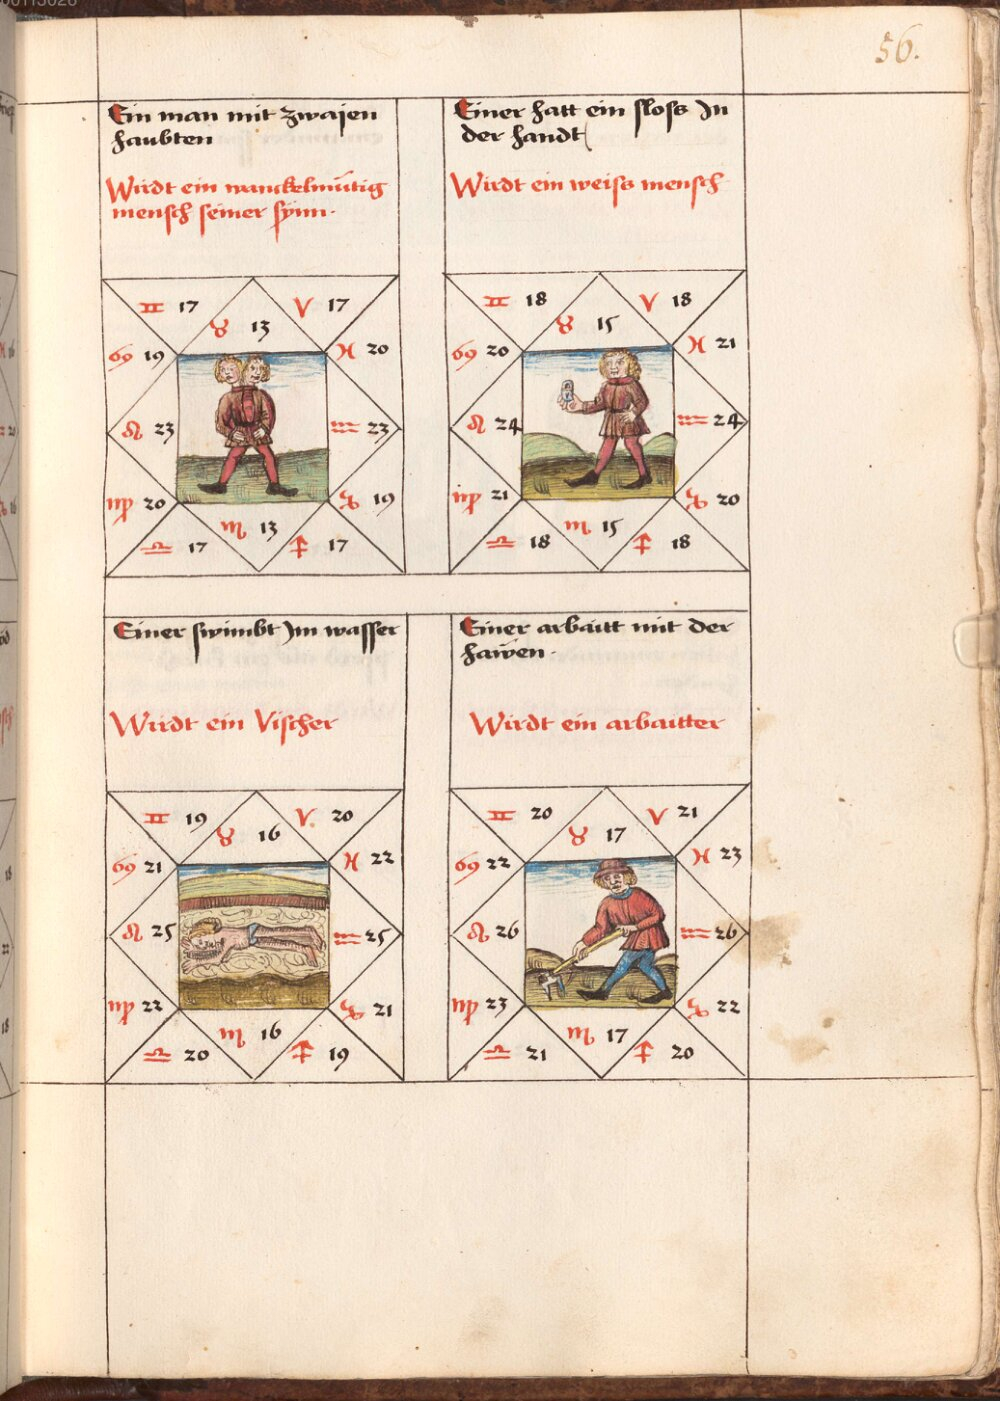 56.
Ein man mit zwaien
haubten
Wirdt ein wanckelmütig
mensch seiner synn.
♊ 17
♈ 17
♉ 13
♋ 19
♓ 20
♌ 23
♒ 23
♍ 20
♑ 19
♏ 13
♎ 17
♐ 17
Einer hatt ein sloss In
der handt
Wirdt ein weiss mensch
♊ 18
♈ 18
♉ 15
♋ 20
♓ 21
♌ 24
♒ 24
♍ 21
♑ 20
♏ 15
♎ 18
♐ 18
Einer swimbt Im wasser
Wirdt ein Vischer
♊ 19
♈ 20
♉ 16
♋ 21
♓ 22
♌ 25
♒ 25
♍ 22
♑ 21
♏ 16
♎ 20
♐ 19
Einer arbaitt mit der
hawen.
Wirdt ein arbaitter
♊ 20
♈ 21
♉ 17
♋ 22
♓ 23
♌ 26
♒ 26
♍ 23
♑ 22
♏ 17
♎ 21
♐ 20